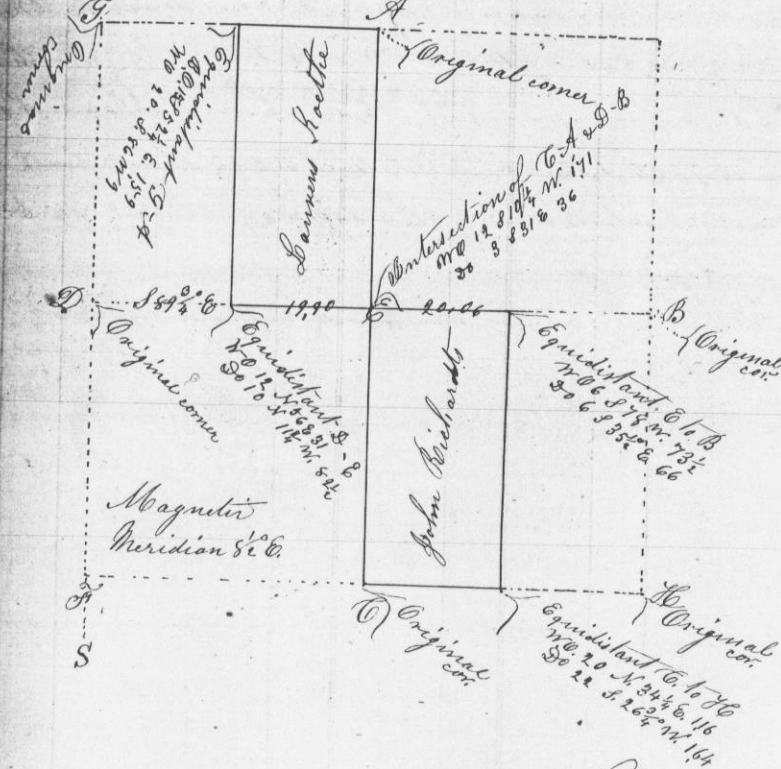 G
A
Original
corner
Equidistant G-A
BO 15 S 52¼ E 159
WO 20 S 86 M 9
Original corner
Intersection of C-A & D-B
WO 12 S 10¼ W. 171
Do 3 S 31 E 36
D
S 89¾° E
19,90
E
20,06
B
Original
cor.
Original corner
Equidistant D-E
WO 12 N. 56 E 31
Do 10 N 11¼ W. 82½
Equidistant. E to B
WO 6 S 78 W. 73½
Do 6 S 35½ E. 66
John Richards
Magnetic
Meridian 8½° E.
F
S
C
Original
cor.
H
Original
cor.
Equidistant C. to H
WO. 20 N. 34¼ E. 116
Do 22 S. 26¾ W. 164